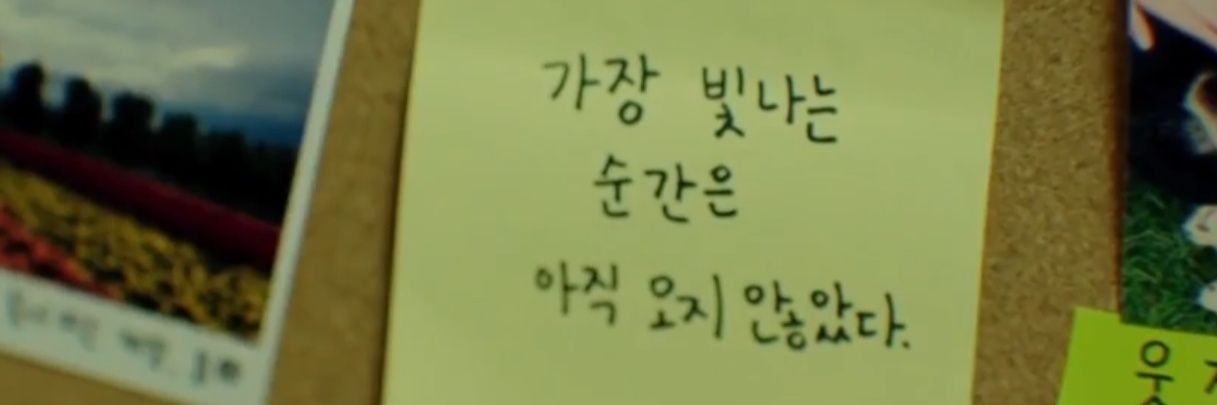 가장 빛나는
순간은
아직 오지 안않았다.